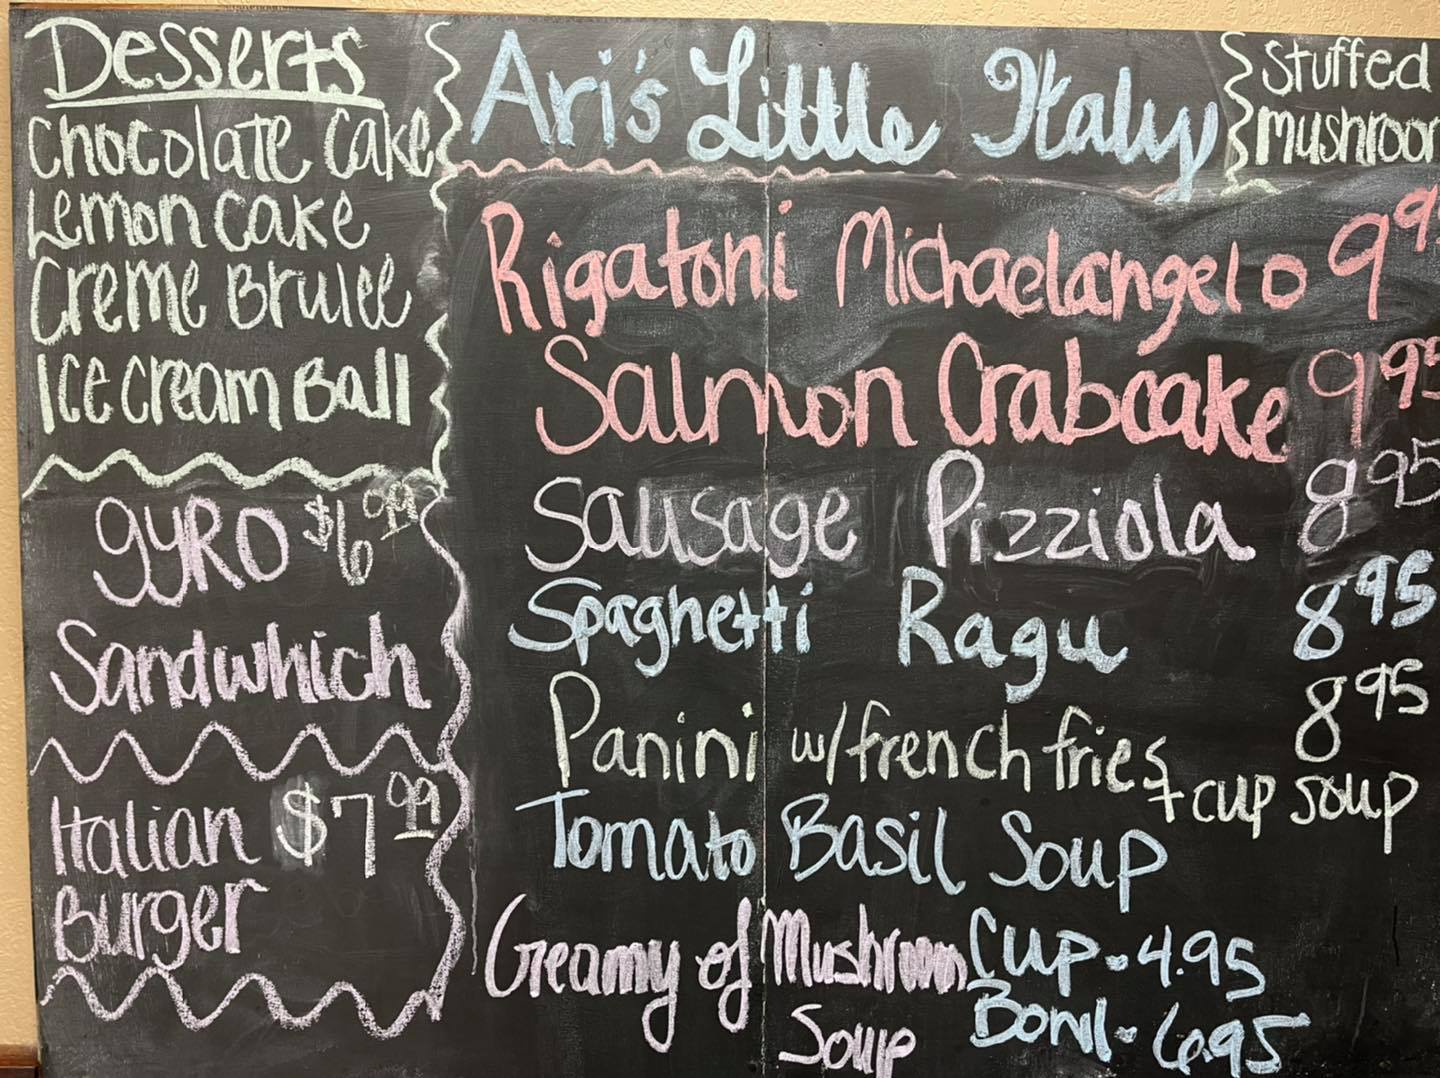 Desserts
Chocolate Cake
Lemon Cake
Creme Brulee
Ice cream Ball
gyRO $6.99
Sandwhich
Italian $7.99
Burger
Ari's Little Italy
Stuffed
Rigatoni Michaelangelo
Salmon Crabcake 9 95
Sausage Pizziola 8 95
Spaghetti Ragu 8 95
Panini w/french fries 8 95
+ cup soup
Tomato Basil Soup
Creamy of Mushroom
Soup
Cup - 4.95
Bowl - 6.95